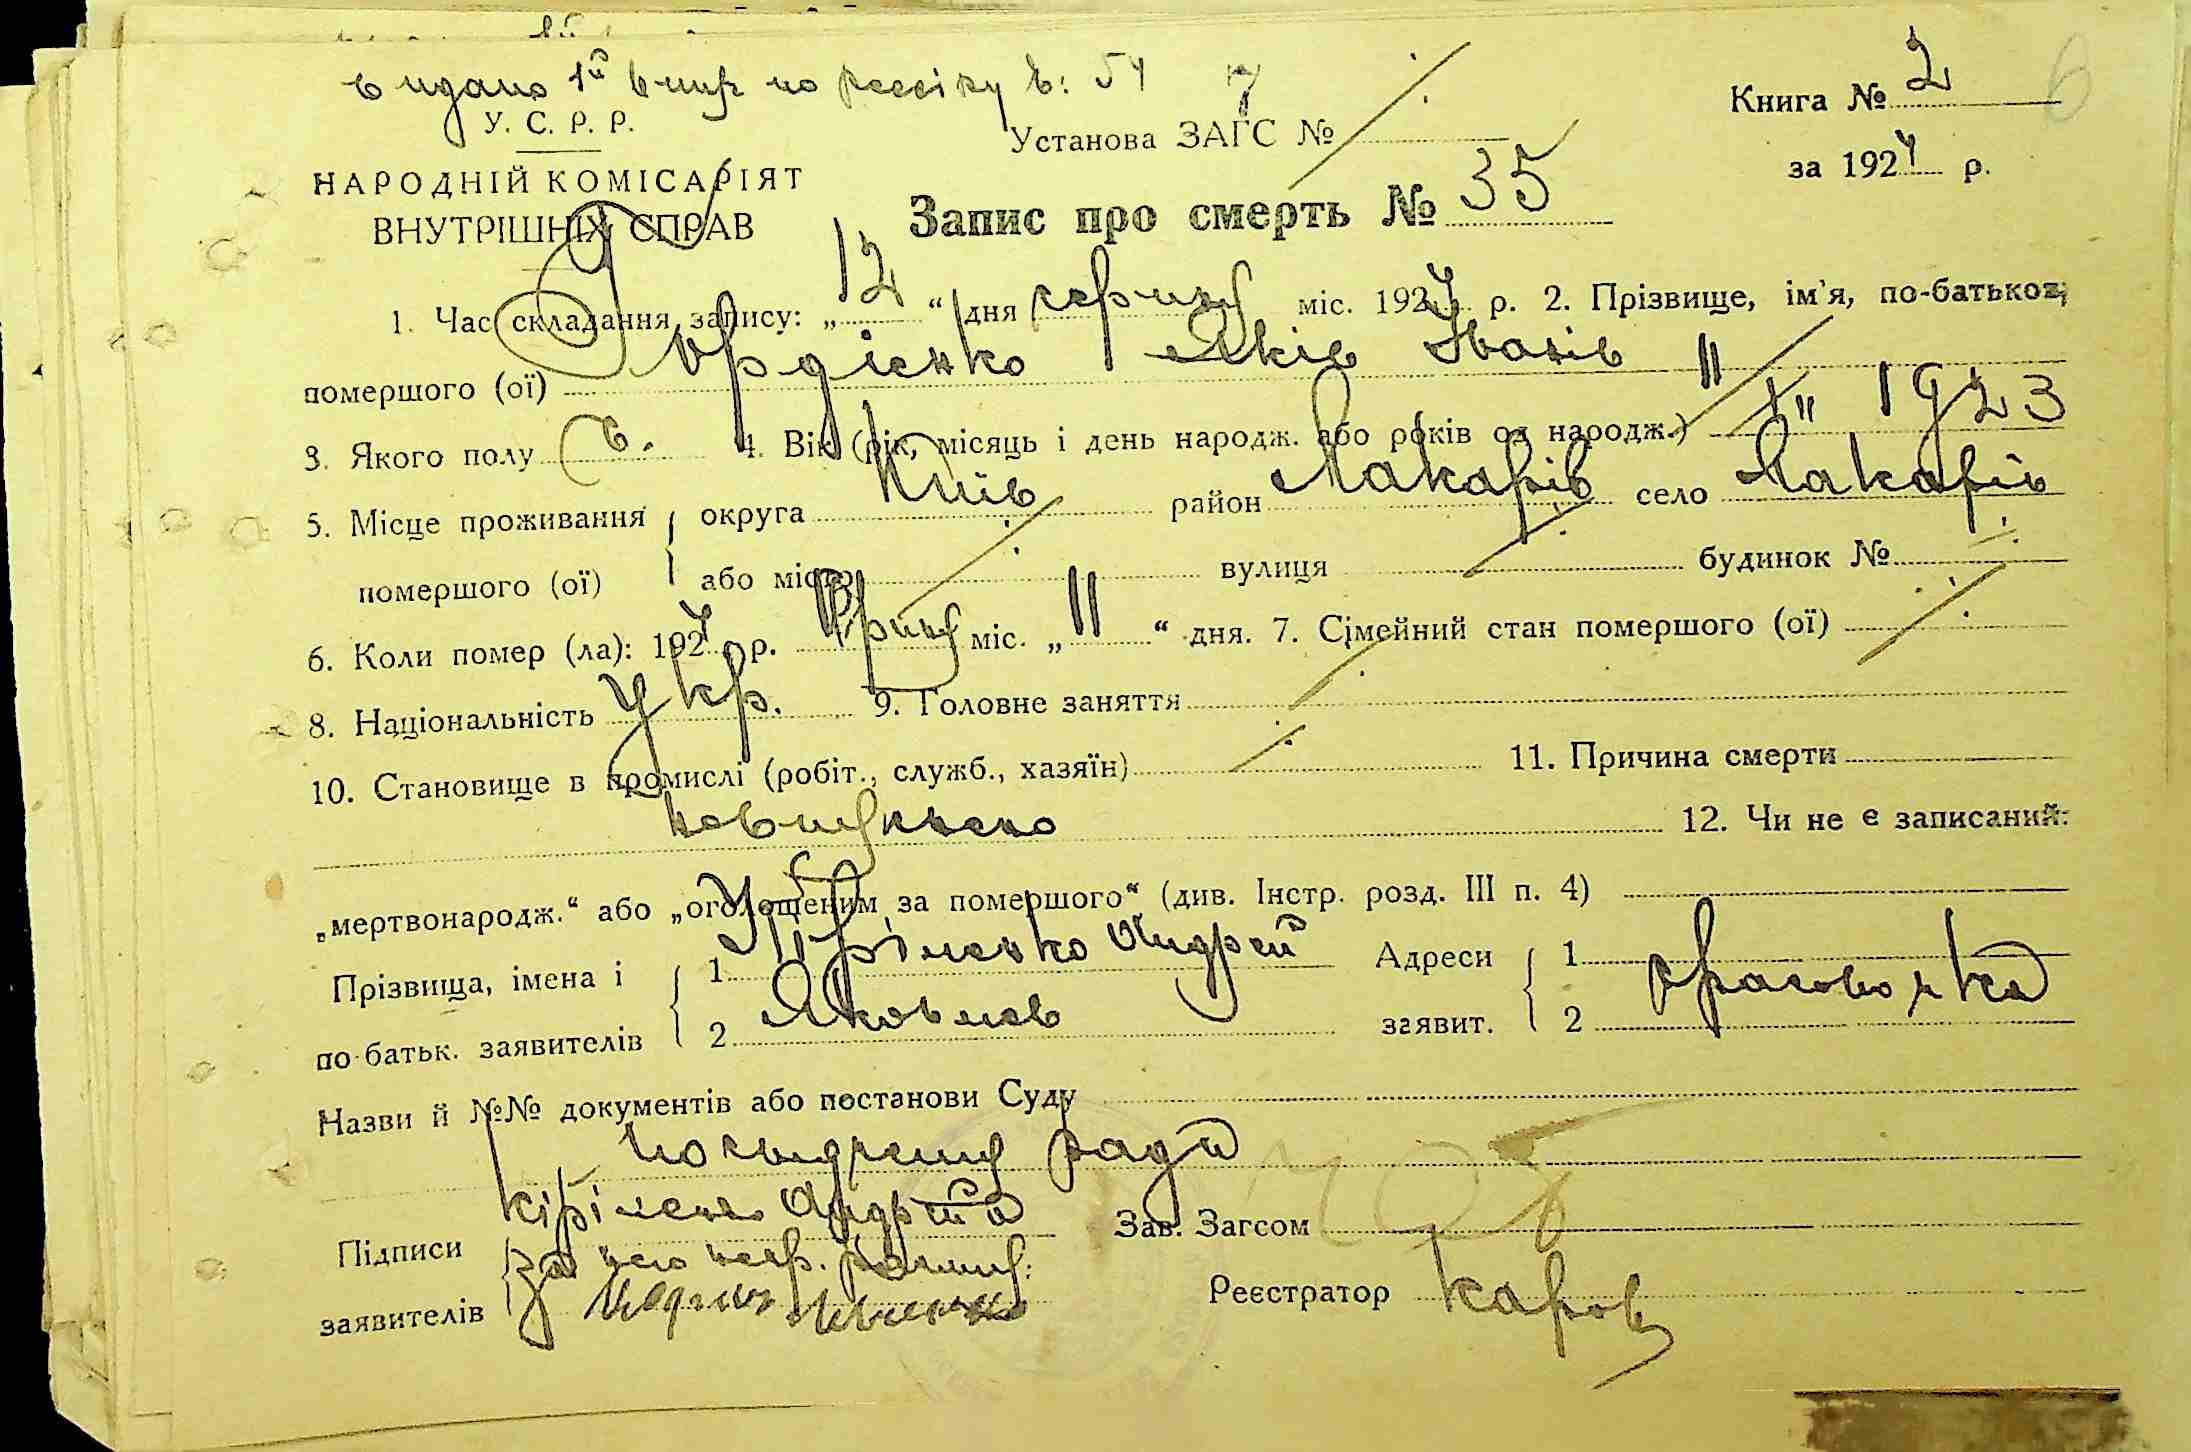 видано 1й випис по реєстру Ч: 54
У. С. Р. Р.
НАРОДНІЙ КОМІСАРІЯТ
ВНУТРІШНІХ СПРАВ
Установа ЗАГС №
Книга № 2
6
за 1924 р.
Запис про смерть № 35
1. Час складання запису: „12“ дня серпня міс. 1924 р. 2. Прізвище, ім'я, по-батькові
помершого (ої) Гордієнко Яків Іванів
3. Якого полу ч. 4. Вік (рік, місяць і день народж. або років од народж.) 11/X 1923
5. Місце проживання округа Київ район Макарів село Макарів
помершого (ої) або місто вулиця будинок №
6. Коли помер (ла): 1924 р. серпня міс. „11“ дня. 7. Сімейний стан помершого (ої)
8. Національність укр. 9. Головне заняття
10. Становище в промислі (робіт., служб., хазяїн) 11. Причина смерти
12. Чи не є записаний:
„мертвонародж.“ або „оголошеним за помершого“ (див. Інстр. розд. III п. 4)
Прізвища, імена і 1 Кіріленко Андрей Адреси 1
по батьк. заявителів 2 Яковлев заявит. 2
Назви й №№ документів або постанови Суду
ради
Підписи Кіріленко Андрей Зав. Загсом
за його непр.
заявителів Реєстратор Каров